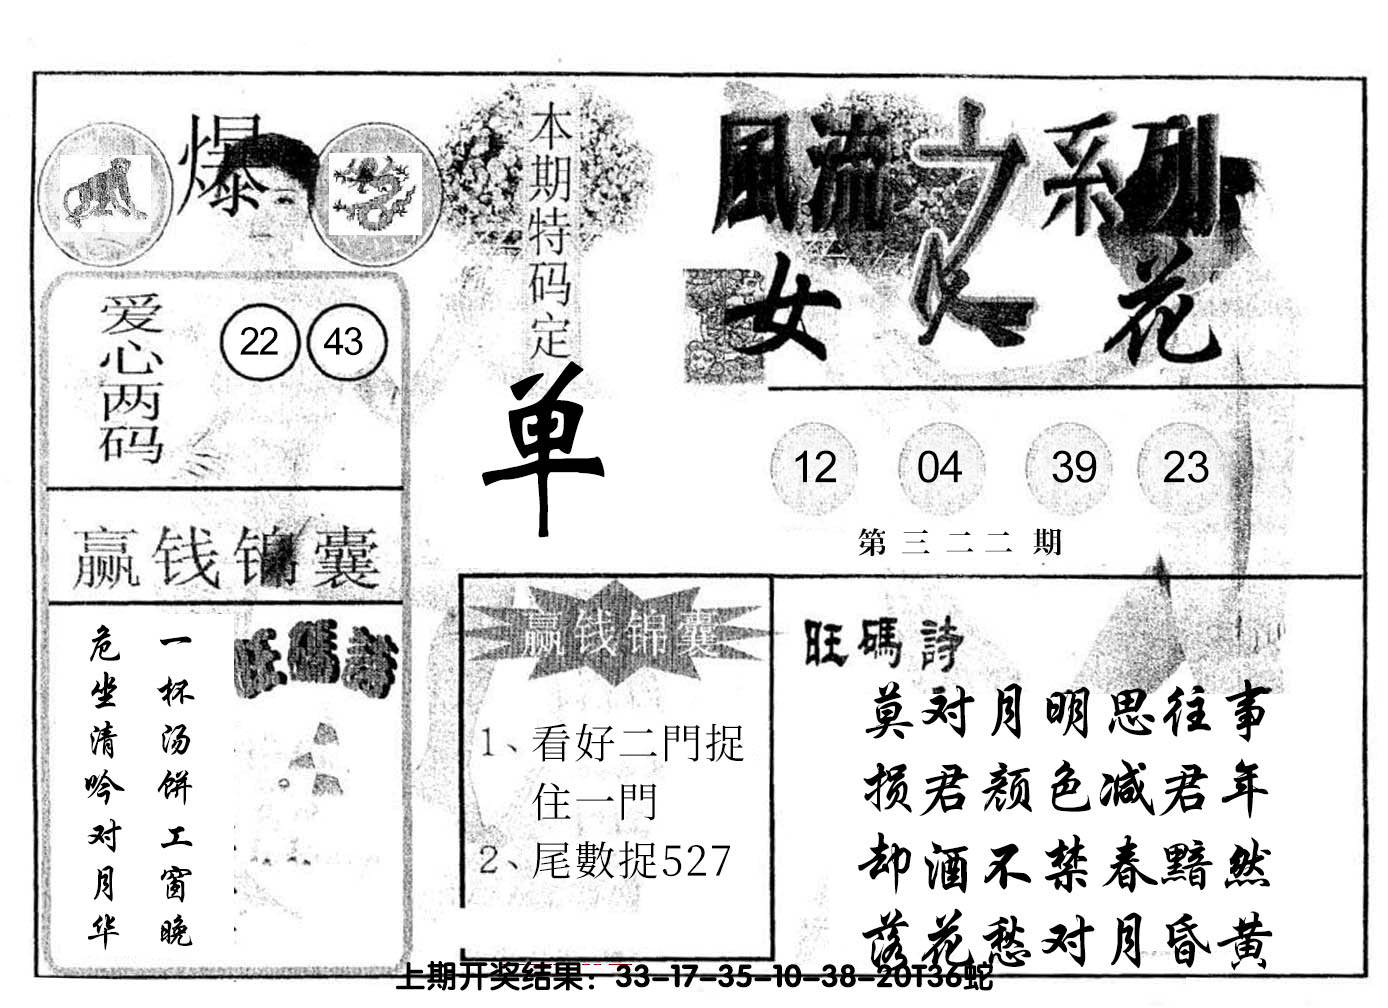 爆
爱心两码
22 43
赢钱锦囊
一杯汤饼工窗晚
危坐清吟对月华
旺碼詩
本期特码定
单
風流之系列
女人花
12 04 39 23
第三二二期
赢钱锦囊
1、看好二門捉
住一門
2、尾數捉527
旺碼詩
莫对月明思往事
损君颜色减君年
却酒不禁春黯然
落花愁对月昏黄
上期开奖结果：33-17-35-10-38-20T36蛇